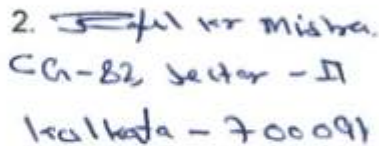 2. kr Misra.
CG-82, Sector - II
Kolkata - 700091